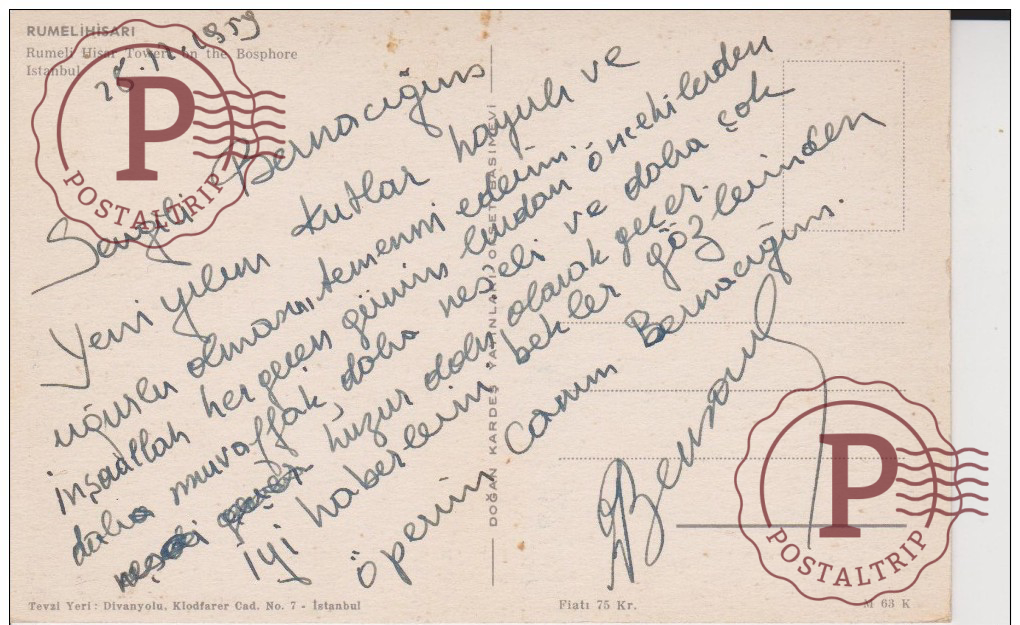 RUMELİHİSARI
Rumeli Hisar Towers on the Bosphore
Istanbul
1959
Sevgili Bernacığım
Yeni yılını kutlar hayırlı ve
uğurlu olmasını temenni ederim.
İnşaallah her geçen günün bundan öncekilerden
daha muvaffak daha neşeli ve daha çok
huzur dolu olarak geçer.
İyi haberlerini bekler gözlerinden
öperim canım Bernacığım.
DOĞAN KARDEŞ YAYINLARI
BASIMEVİ
Tevzi Yeri: Divanyolu, Klodfarer Cad. No. 7 - İstanbul
Fiatı 75 Kr.
M 63 K
P
POSTALTRIP
P
POSTALTRIP